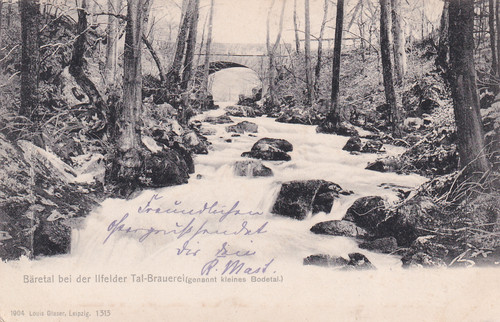 Freundlichen
Ostergruß sendet
die
P. Mast.
Bäretal bei der Ilfelder Tal-Brauerei (genannt kleines Bodetal.)
1904 Louis Glaser, Leipzig. 1315